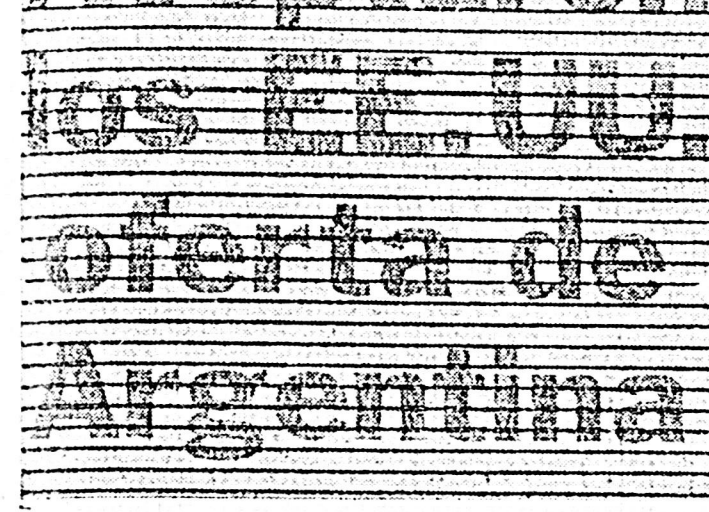 los EE.UU.
oferta de
Argentina